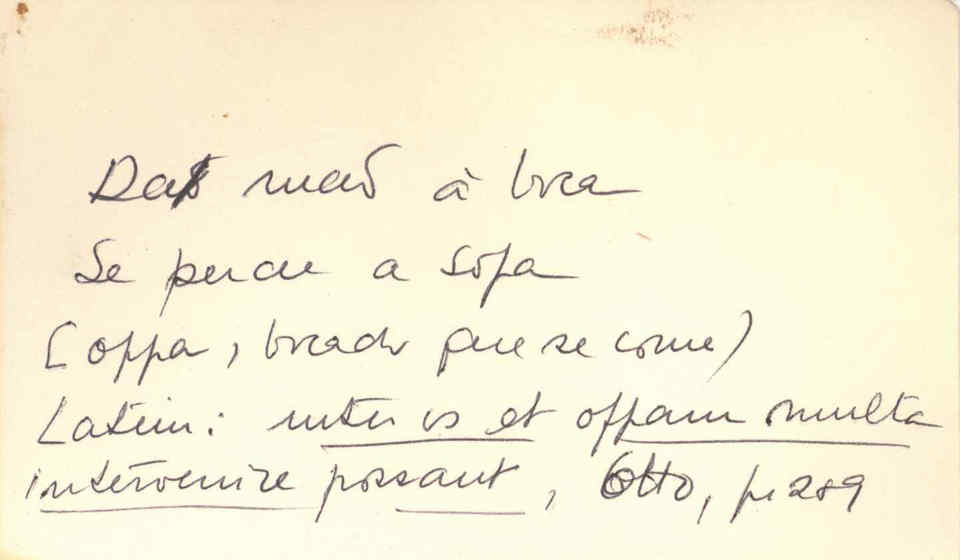 Da mão à boca
Se perde a sopa
(offa, bocado que se come)
Latim: inter os et offam multa
intervenire possunt, Otto, p. 259